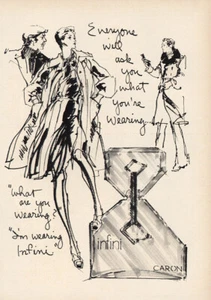 Everyone
will
ask
you
what
you're
wearing.
"What
are you
wearing?
"I'm wearing
Infini"
infini
CARON